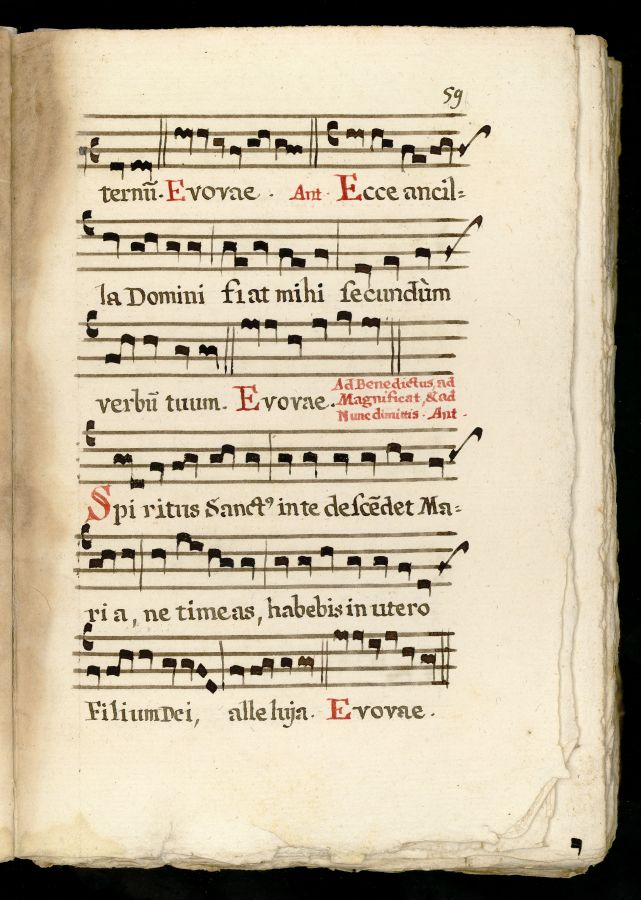 59
ternũ. Evovae. Ant. Ecce ancil=
la Domini fiat mihi secundùm
verbũ tuum. Evovae. Ad Benedictus, ad
Magnificat, & ad
Nunc dimittis. Ant.
Spiritus Sanctꝰ in te descẽdet Ma=
ria, ne timeas, habebis in utero
Filium Dei, alleluja. Evovae.